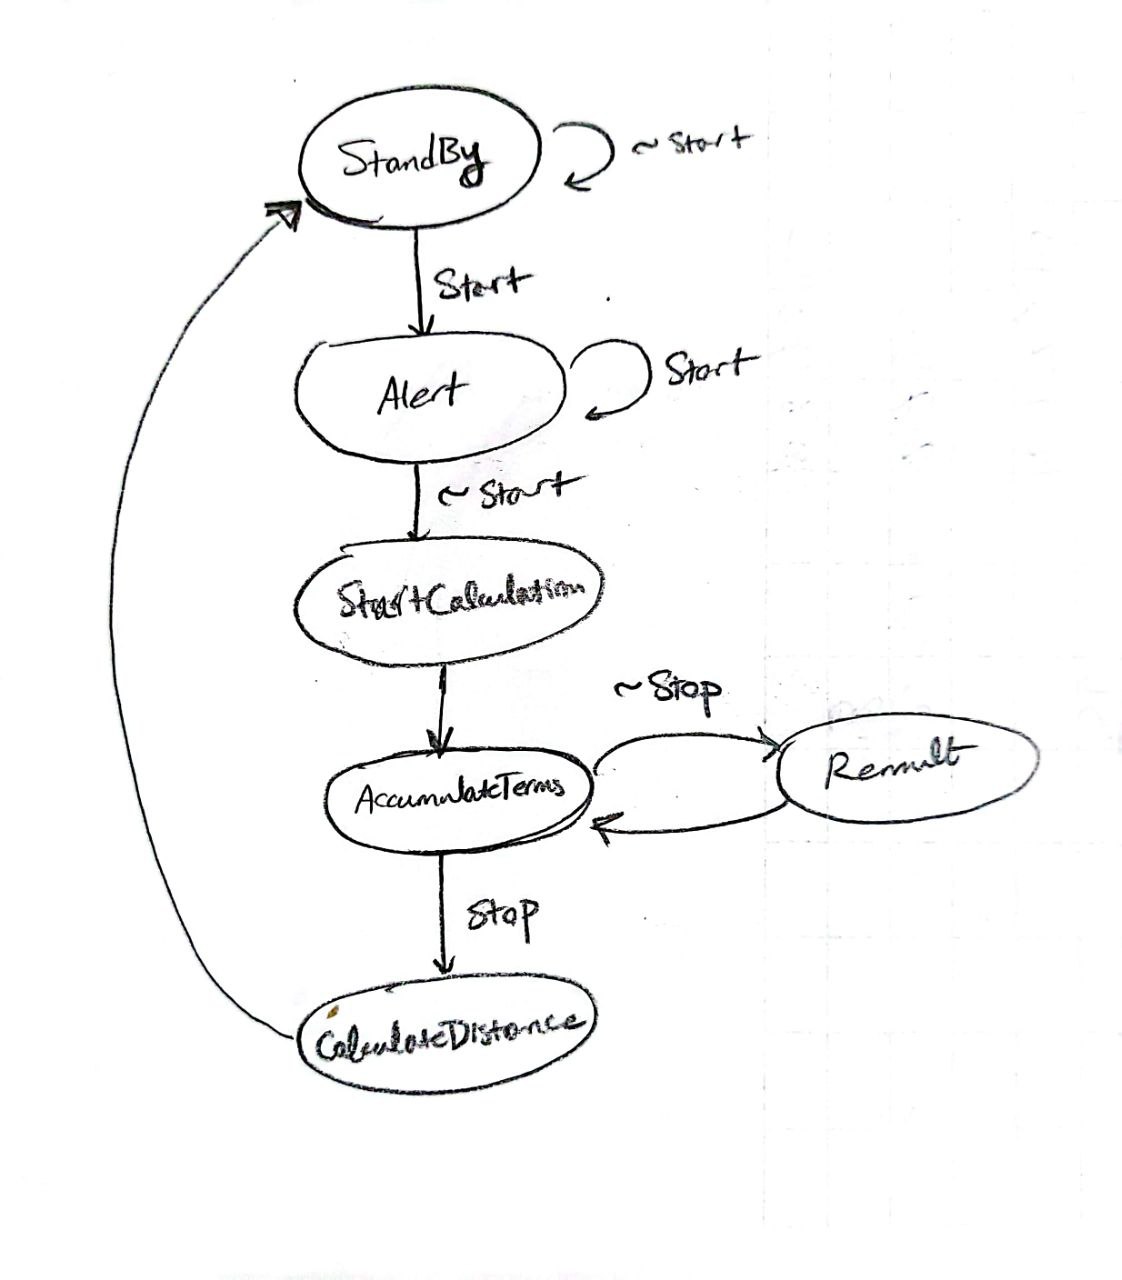 StandBy
~Start
Start
Alert
Start
~Start
StartCalculation
~Stop
AccumulateTerms
Remult
Stop
CalculateDistance